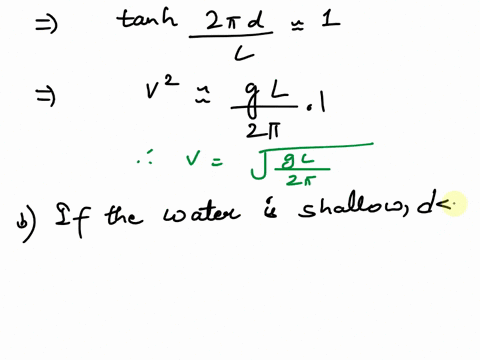 => tanh 2πd/L ≈ 1
=> v² ≈ gL/2π . 1
∴ v = √(gL/2π)
b) If the water is shallow, d<